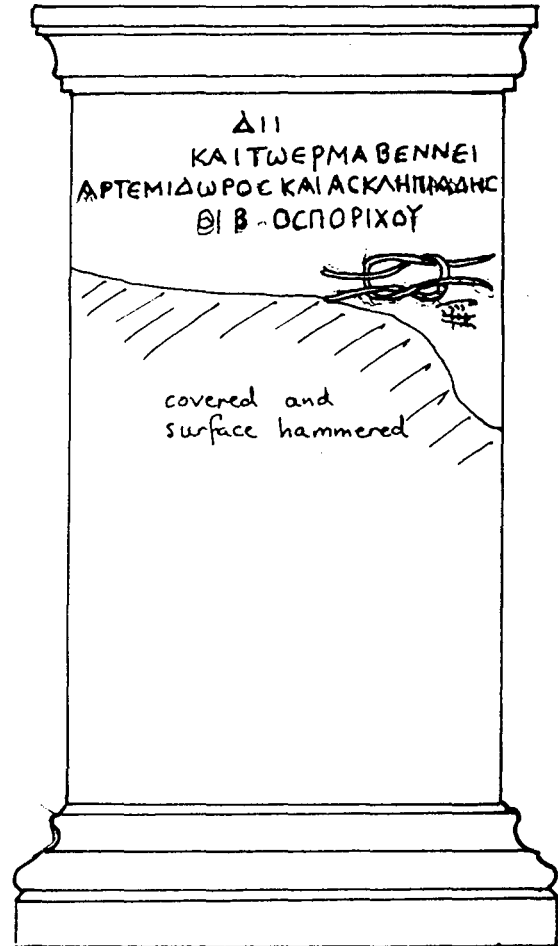 ΔΙΙ
ΚΑΙΤΩΕΡΜΑΒΕΝΝΕΙ
ΑΡΤΕΜΙΔΩΡΟϹ ΚΑΙ ΑϹΚΛΗΠΙΑΔΗϹ
ΟΙ Β - ΟϹΠΟΡΙΧΟΥ
covered and
surface hammered